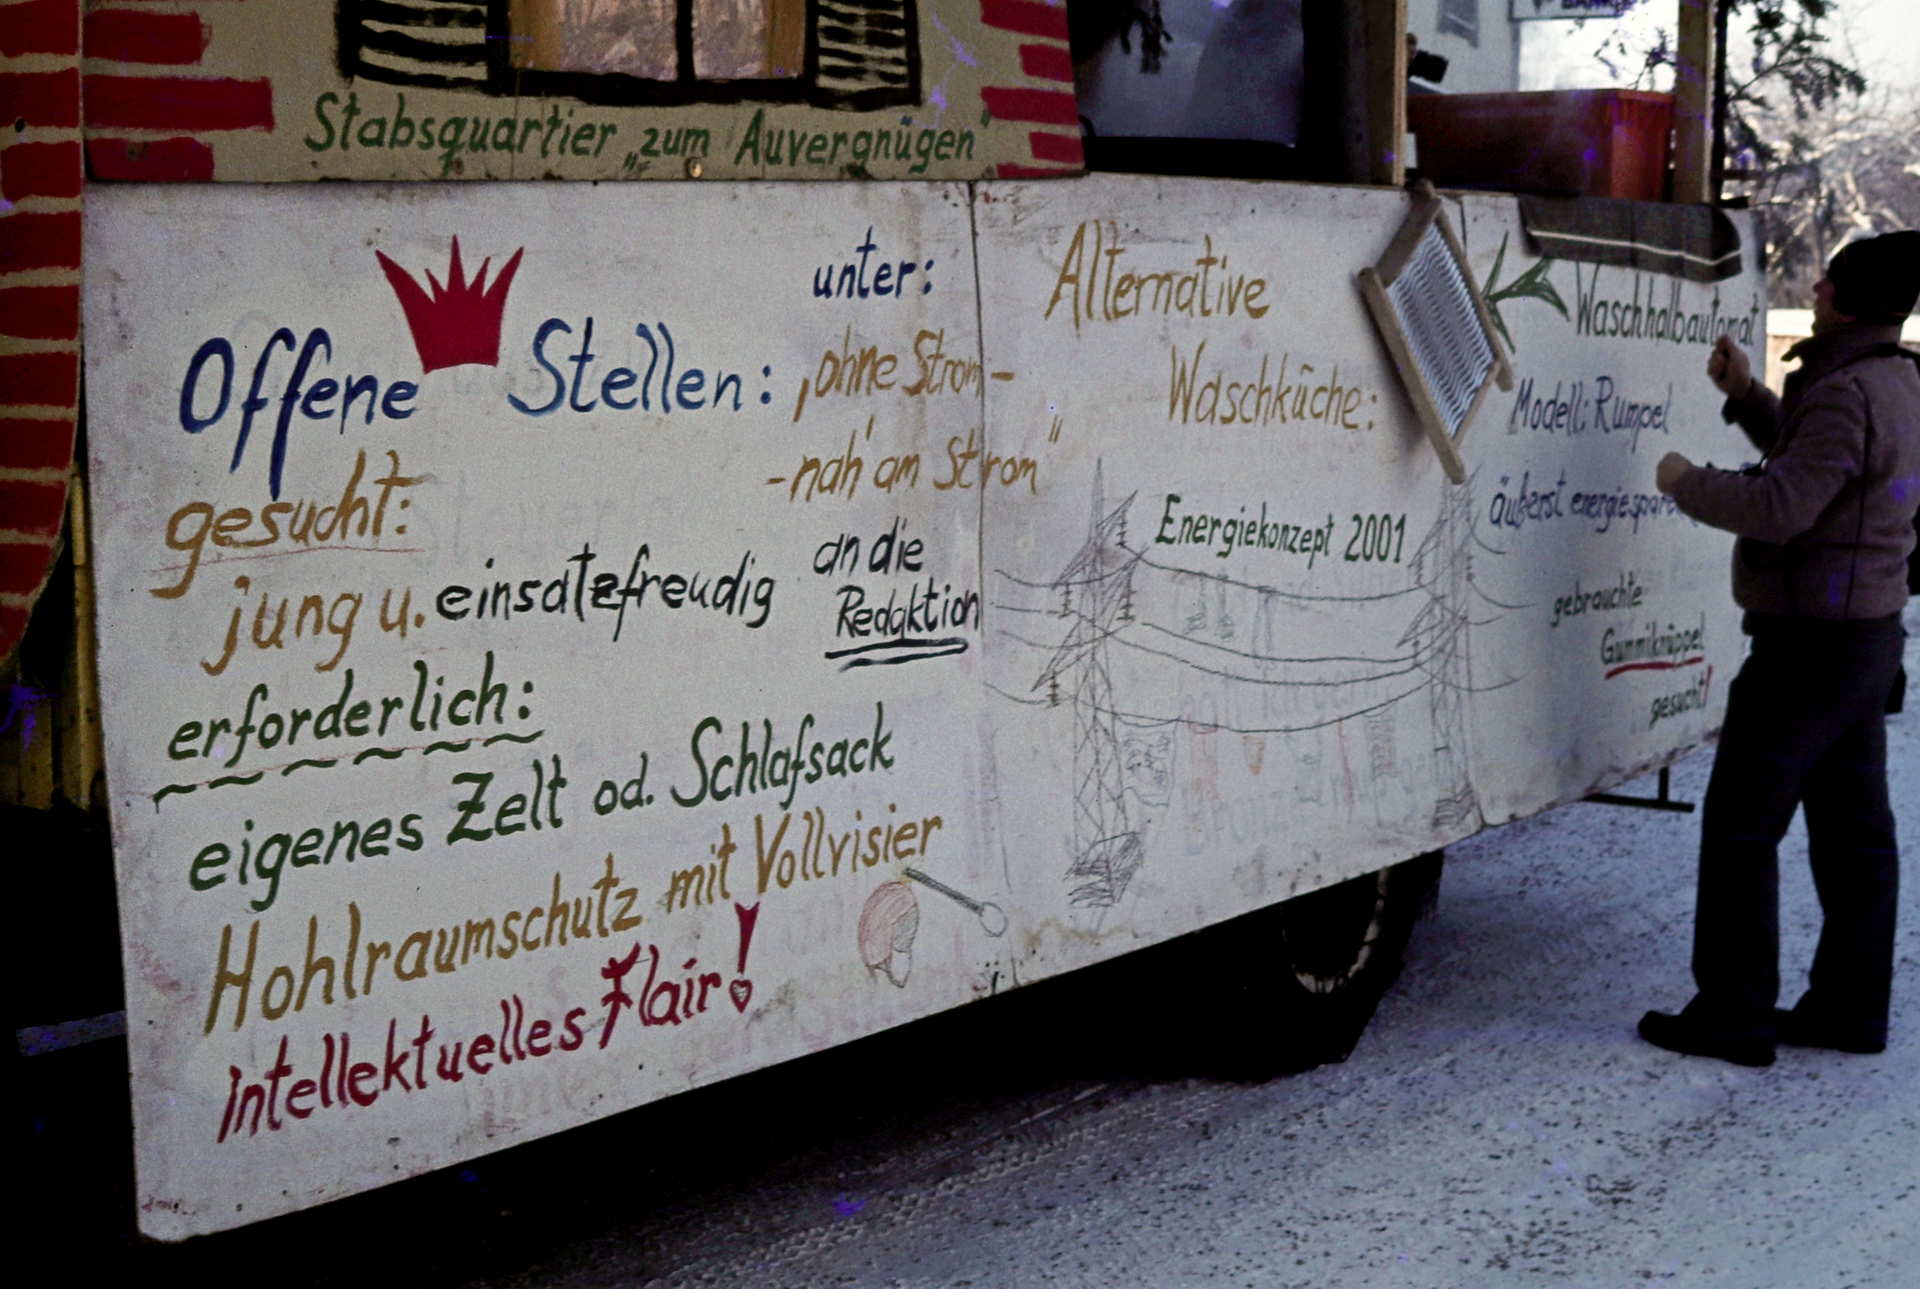 Stabsquartier „zum Auvergnügen"
Offene Stellen:
gesucht:
jung u. einsatzfreudig
erforderlich:
eigenes Zelt od. Schlafsack
Hohlraumschutz mit Vollvisier
intellektuelles Flair!
unter:
„ohne Strom -
- nah' am Strom"
an die
Redaktion
Alternative
Waschküche:
Energiekonzept 2001
Waschhalbautomat
Modell: Rumpel
äußerst
gebrauchte
Gummiknüppel
gesucht!